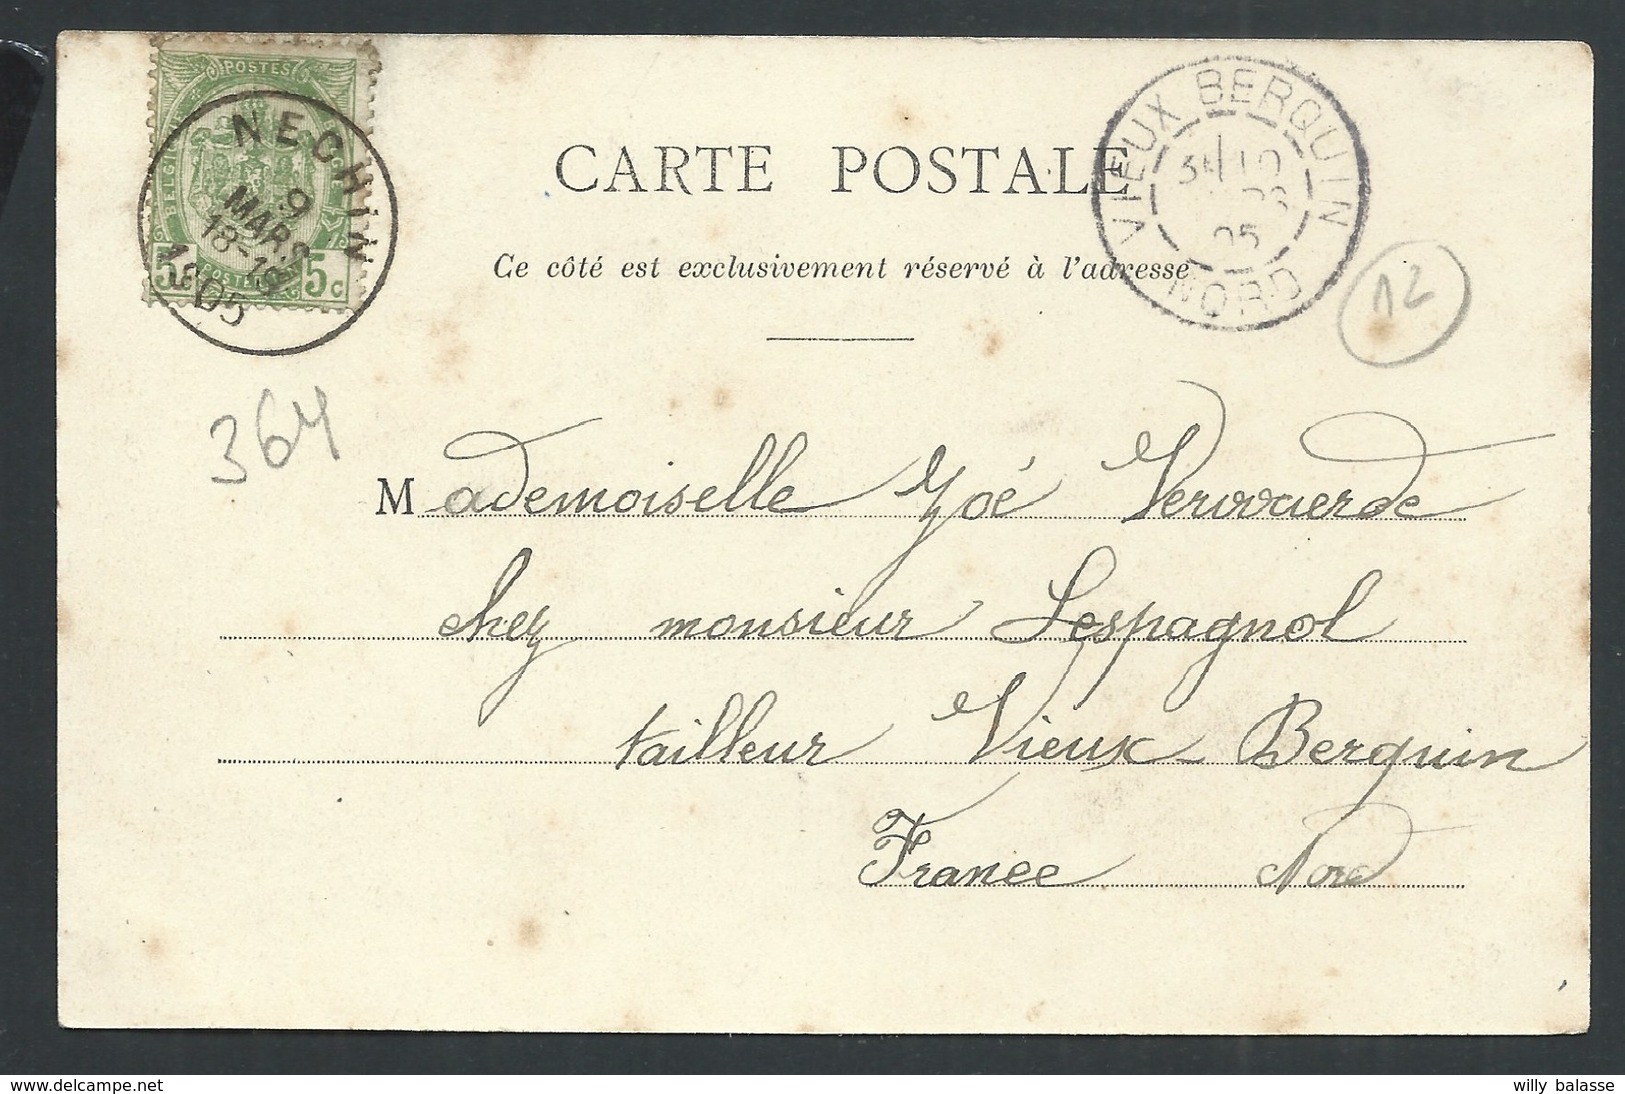 POSTES
BELGIQUE
5 5c
NECHIN
9
MARS
18-19
1905
VIEUX BERQUIN
10
05
NORD
CARTE POSTALE
Ce côté est exclusivement réservé à l'adresse
12
364
Mademoiselle Zoé
chez monsieur Lespagnol
tailleur Vieux-Berquin
France Nord
willy balasse